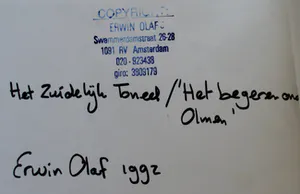 COPYRIG
ERWIN OLAF
Swammerdamstraat 26-28
1091 RV Amsterdam
020-923438
giro: 3809179
Het Zuidelijk Toneel / 'Het begeren onder
Olmen'
Erwin Olaf 1992